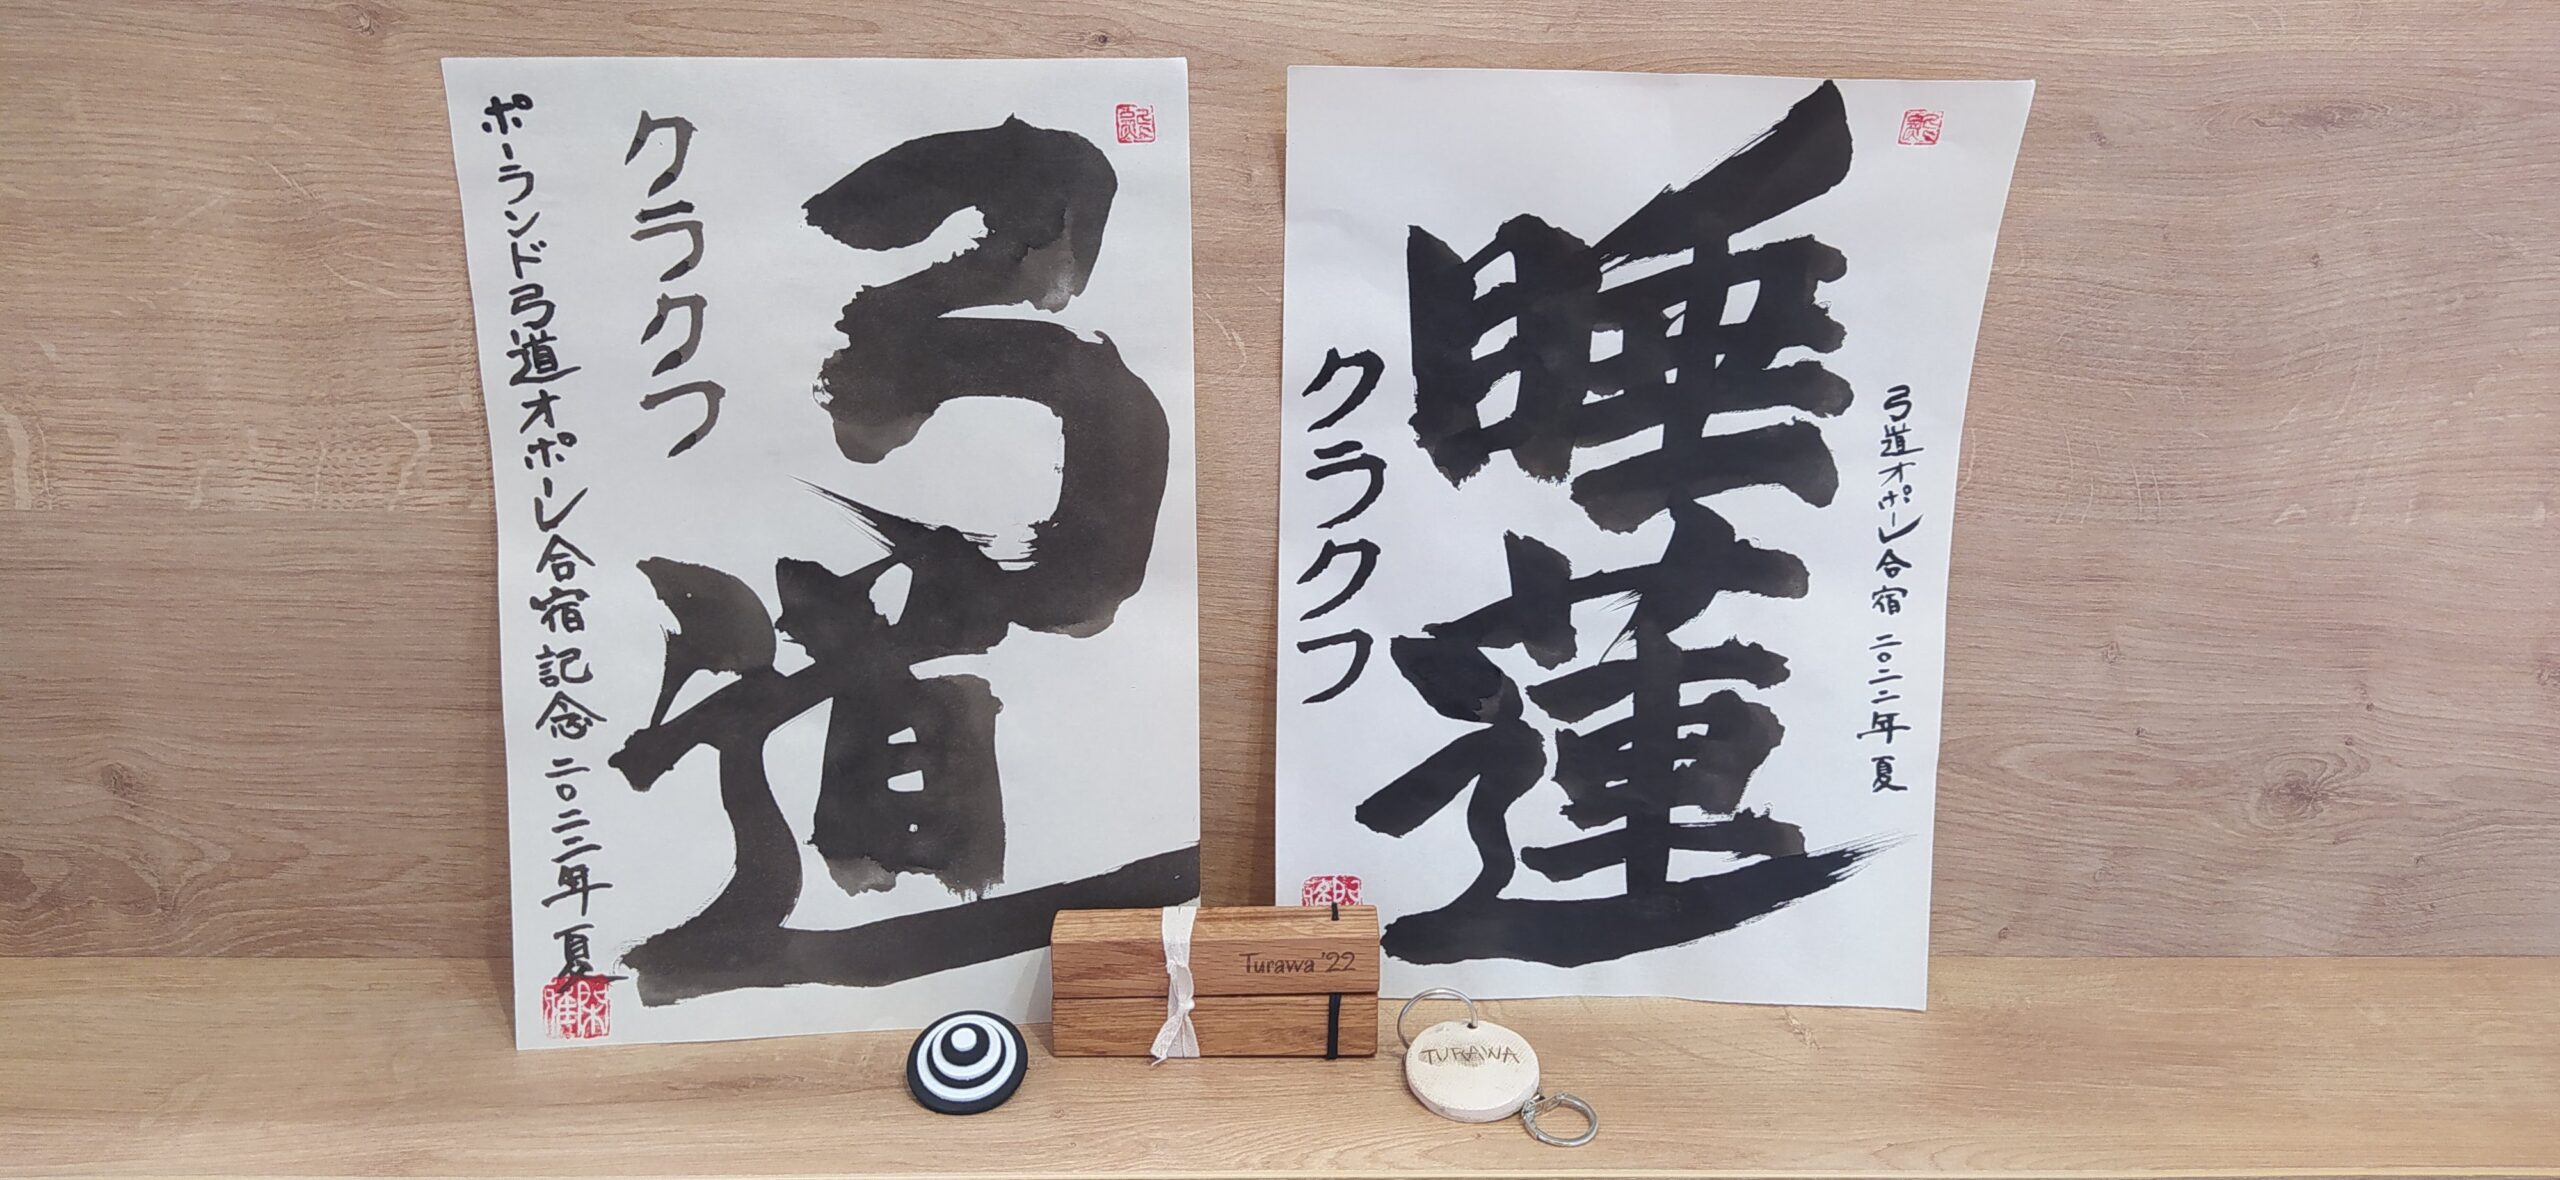 弓道
クラクフ
ポーランド弓道オポーレ合宿記念 二〇二二年 夏
弓道オポーレ合宿 二〇二二年 夏
睡蓮
クラクフ
Turawa '22
TURAWA